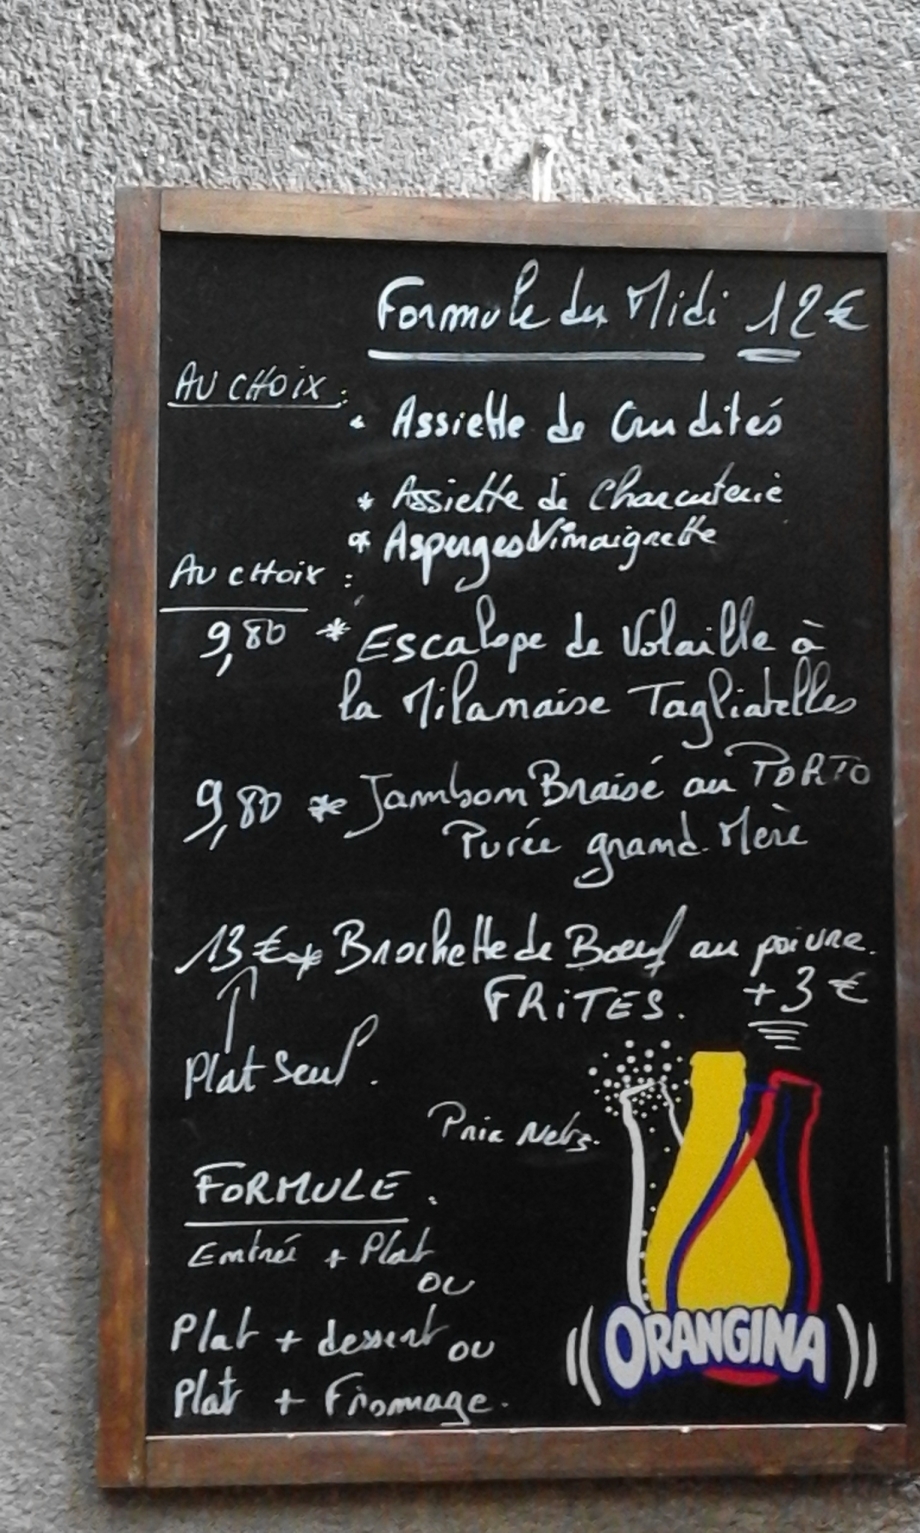 Formule du Midi 12€
AU CHOIX :
* Assiette de Crudités
* Assiette de Charcuterie
* Asperges Vinaigrette
AU CHOIX :
9,80 * Escalope de Volaille à
la Milanaise Tagliatelles
9,80 * Jambon Braisé au PORTO
Purée grand-Mère
13 € * Brochette de Bœuf au poivre.
FRITES. +3 €
Plat Seul.
Prix Nets.
FORMULE.
Entrée + Plat
ou
Plat + dessert ou
Plat + Fromage.
ORANGINA